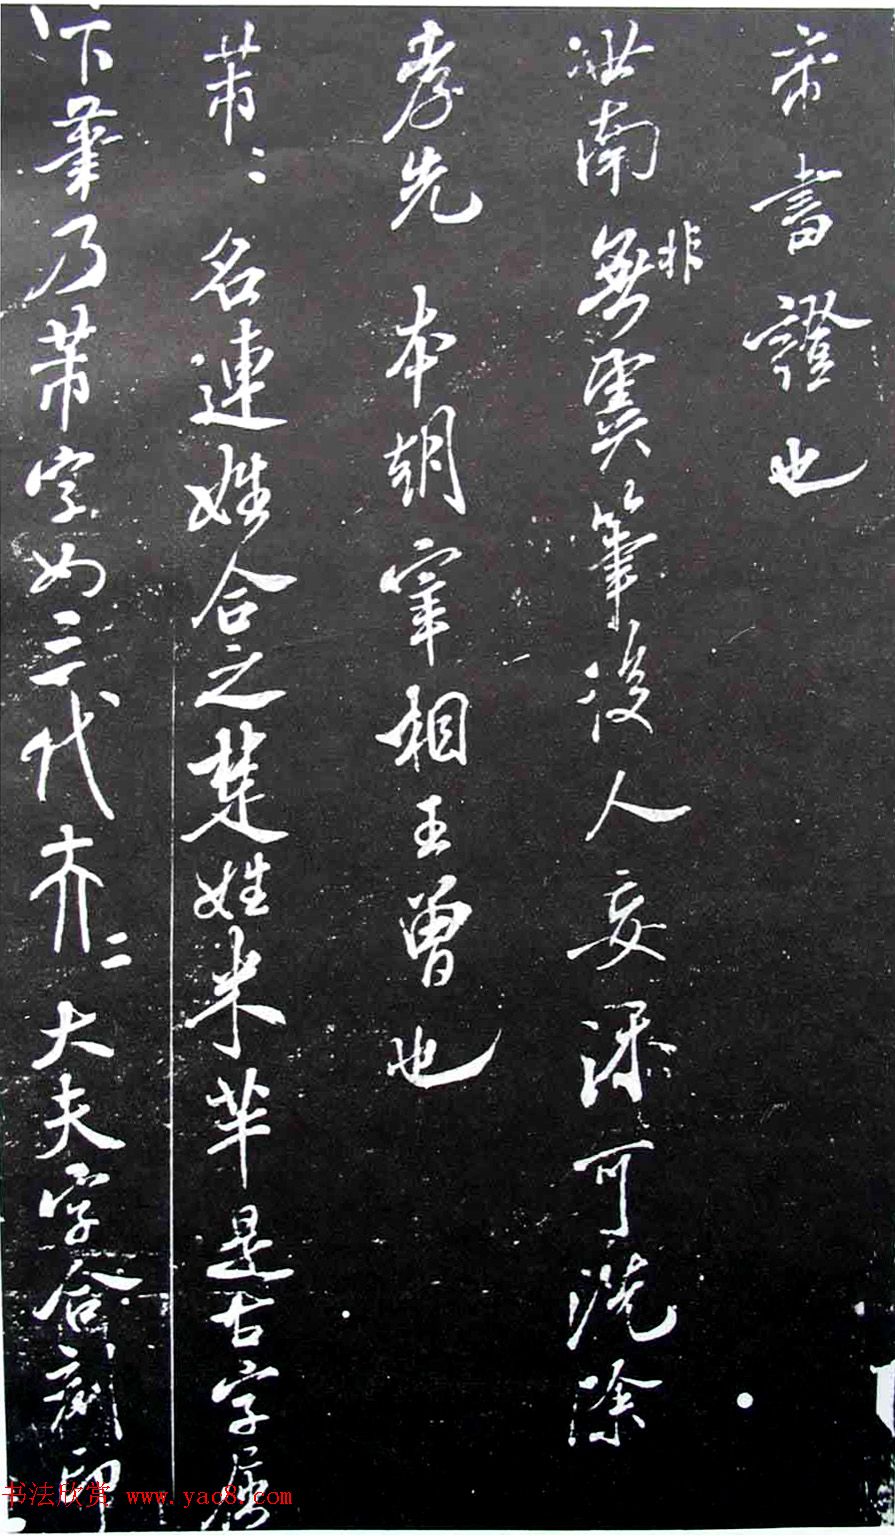 書證也
南無非異筆後人妄添可洗除
孝先 本朝宰相王曾也
芾：名連姓合之楚姓米芊是古字屬
下筆乃芾字如三代亦二大夫字合刻印
书法欣赏 www.yac8.com